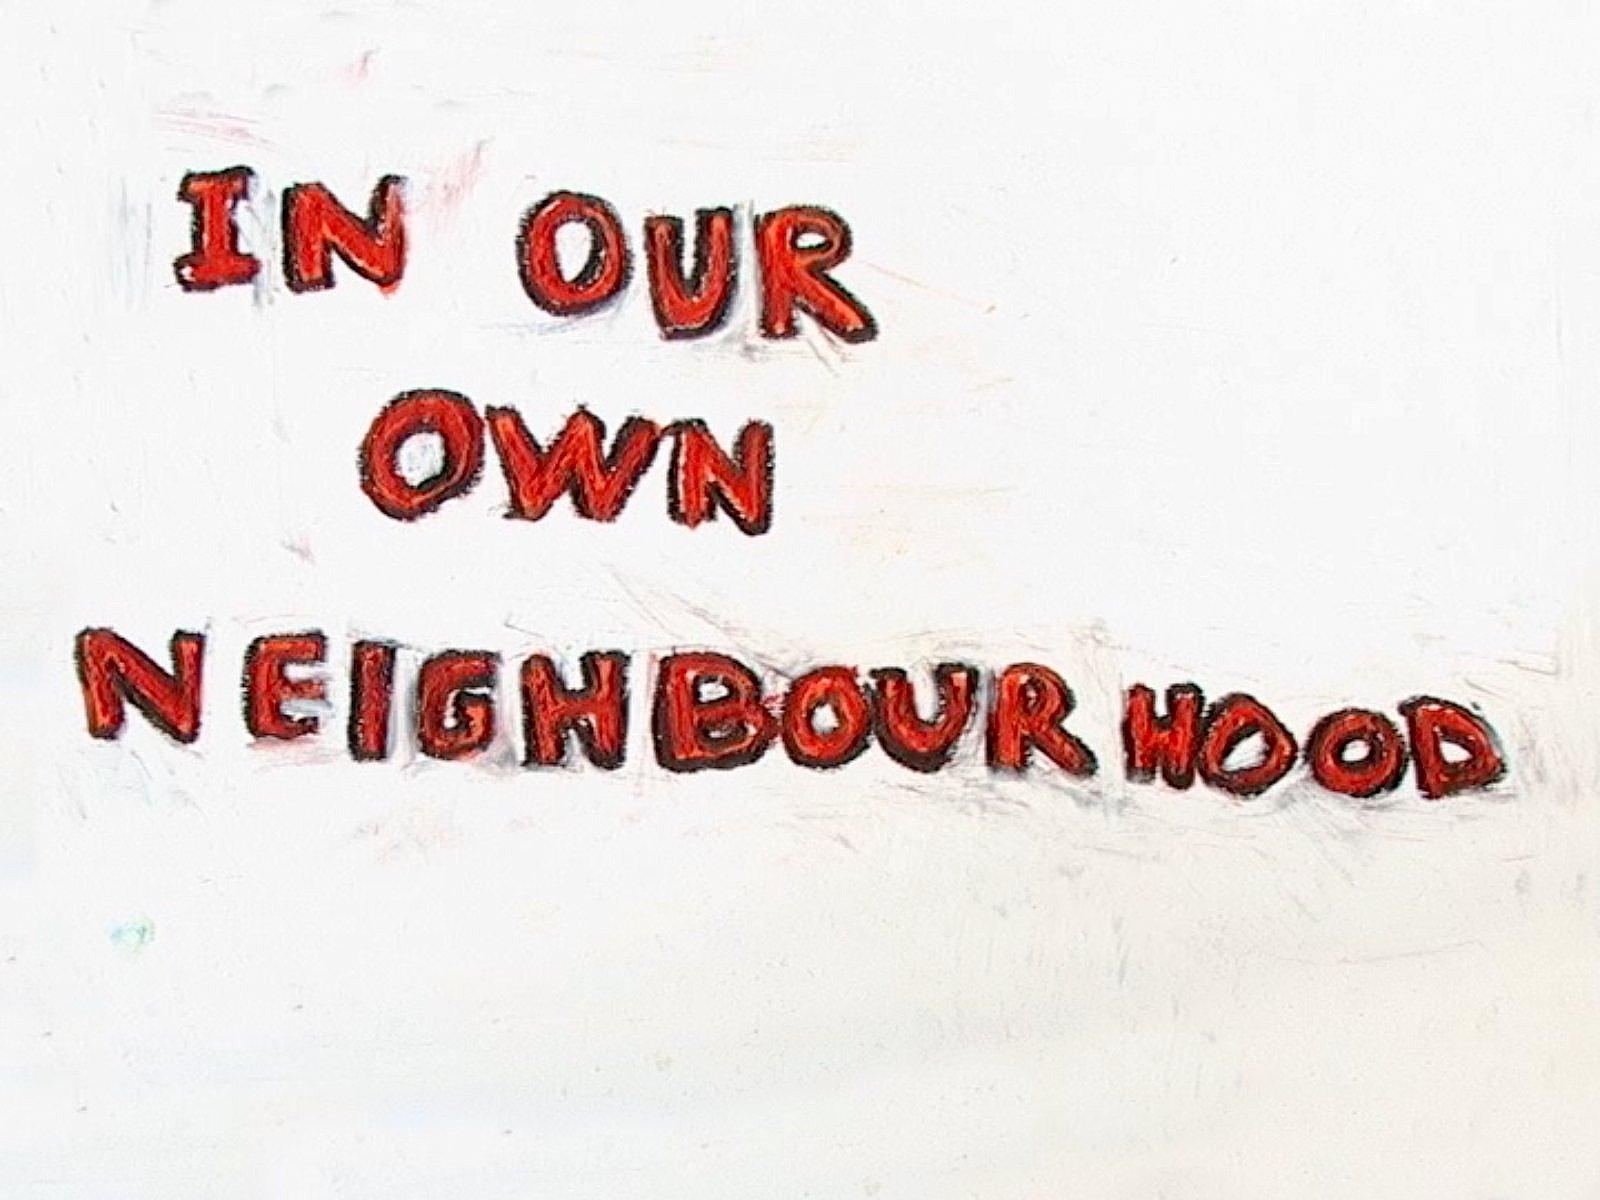 IN OUR
OWN
NEIGHBOURHOOD